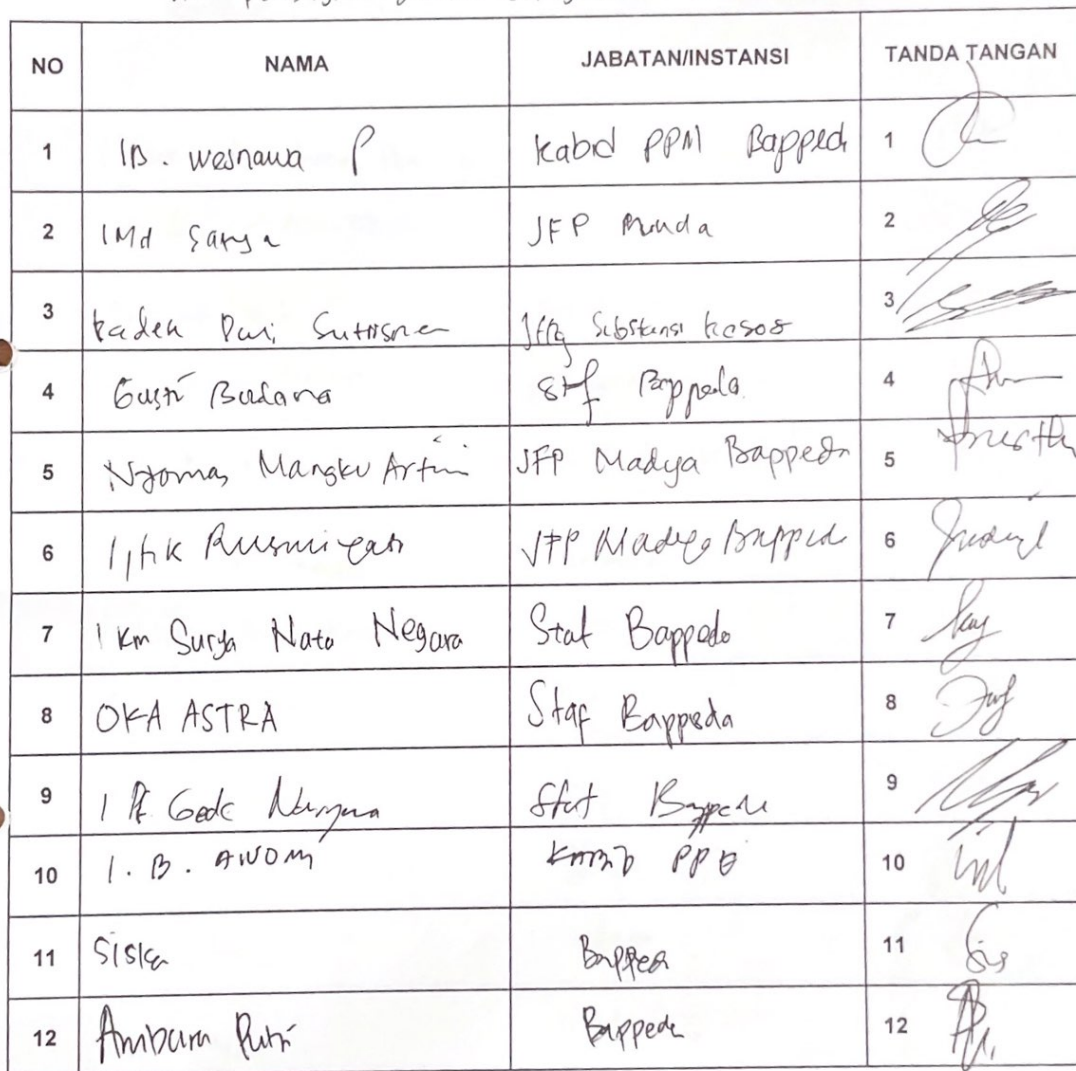 NO NAMA JABATAN/INSTANSI TANDA TANGAN
1 IB. wesnawa P Kabid PPM Bappeda 1
2 I Md Sarya JFP Muda 2
3 Kadek Dwi Sutrisna Substansi kesos 3
4 Gusti Budana Staf Bappeda 4
5 Nyoman Mangku Artini JFP Madya Bappeda 5
6 Rusmiyati JFP Madya Bappeda 6
7 I Km Surya Nata Negara Staf Bappeda 7
8 OKA ASTRA Staf Bappeda 8
9 I Pt Gede Staf Bappeda 9
10 I. B. KABID PPE 10
11 Siska Bappeda 11
12 Ambara Putri Bappeda 12